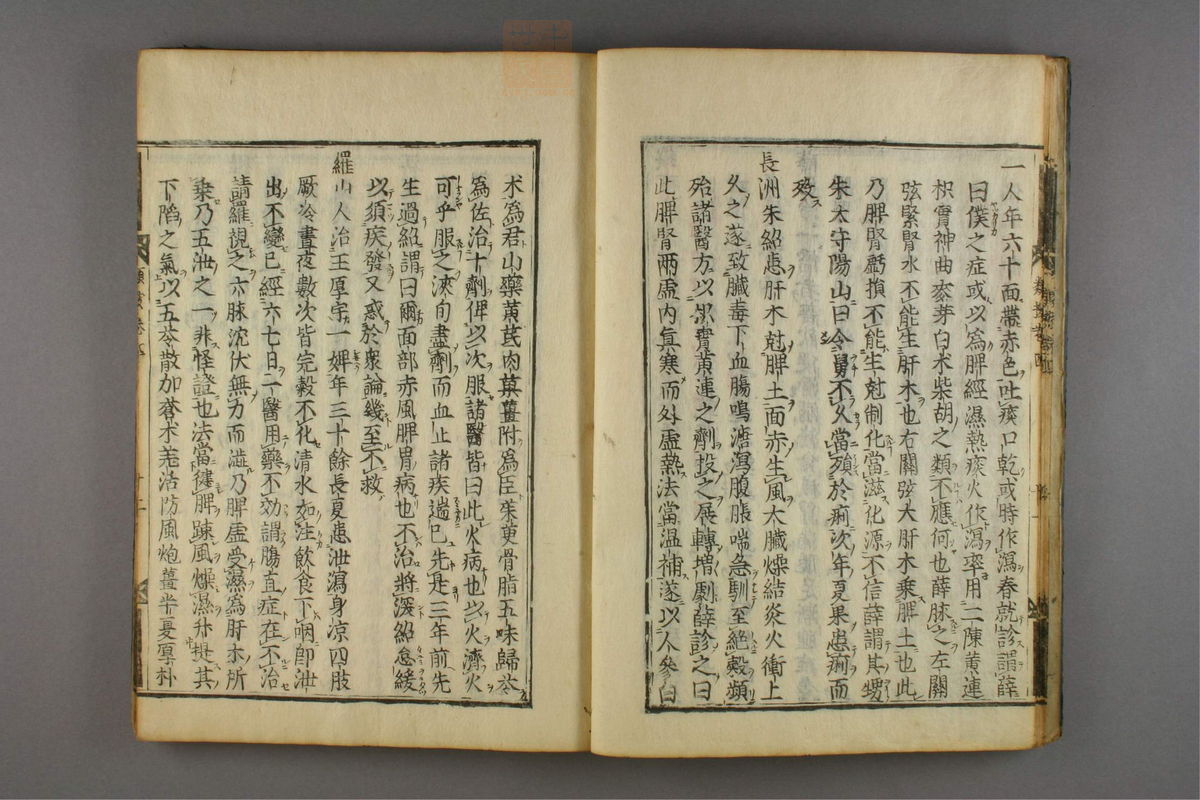 一人年六十面帶赤色吐痰口乾或時作瀉春就診謂薛
曰僕之症或以爲脾經濕熱痰火作瀉率用二陳黃連
枳實神曲麥芽白朮柴胡之類不應何也薛脉之左關
弦緊腎水不能生肝木也右關弦大肝木乗脾土也此
乃脾腎虧損不能生尅制化當滋化源不信薛謂其甥
朱太守陽山曰令舅不久當殞於痢次年夏果患痢而
歿
長洲朱紹患肝木尅脾土面赤生風大臟燥結炎火衝上
久之遂致臟毒下血腸鳴溏瀉腹脹喘急馴至絶穀瀕
殆諸醫方以枳實黃連之劑投之展轉增劇薛診之曰
此脾腎兩虛内眞寒而外虛熱法當温補遂以人參白
术爲君山藥黃芪肉菓薑附爲臣茱萸骨脂五味歸苓
爲佐治十劑俾以次服諸醫皆曰此火病也以火濟火
可乎服之浹旬盡劑而血止諸疾遄已先是三年前先
生過紹謂曰爾面部赤風脾胃病也不治將深紹怠緩
以須疾發又惑於衆論幾至不救
羅山人治王厚宇一婢年三十餘長夏患泄瀉身凉四肢
厥冷晝夜數次皆完穀不化清水如注飲食下咽即泄
出不變已經六七日二醫用藥不効謂腸直症在不治
請羅視之六脉沈伏無力而澁乃脾虛受濕爲肝木所
乗乃五泄之一非怪證也法當健脾踈風燥濕升提其
下陷之氣以五苓散加蒼术羌活防風炮薑半夏厚朴